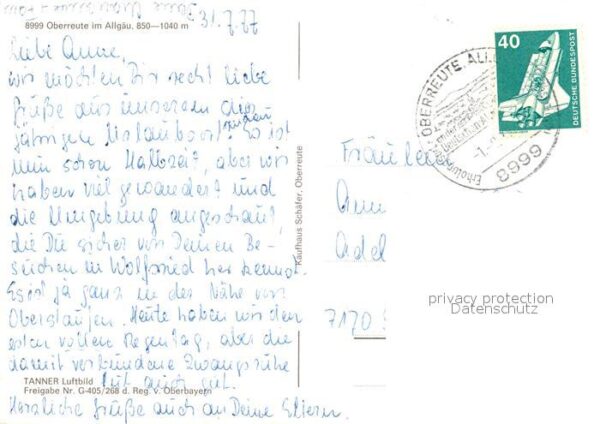 31.7.77
8999 Oberreute im Allgäu, 850—1040 m
Liebe Anne,
wir möchten Dir recht liebe
Grüße aus unserem dies-
jährigen Urlaubsort senden. Es ist
nun schon Halbzeit, aber wir
haben viel gewandert und
die Umgebung angeschaut,
die Du sicher von Deinen Be-
suchen in Wolfsried her kennst.
Es ist ja ganz in der Nähe von
Oberstaufen. Heute haben wir den
ersten vollen Regentag, aber die
damit verbundene Zwangsruhe
TANNER Luftbild
tut auch gut.
Freigabe Nr. G-405/268 d. Reg. v. Oberbayern
Herzliche Grüße auch an Deine Eltern.
Kaufhaus Schäfer, Oberreute
OBERREUTE, ALL
8999
40
DEUTSCHE BUNDESPOST
Fräulein
Ann
Adel
7170
privacy protection
Datenschutz